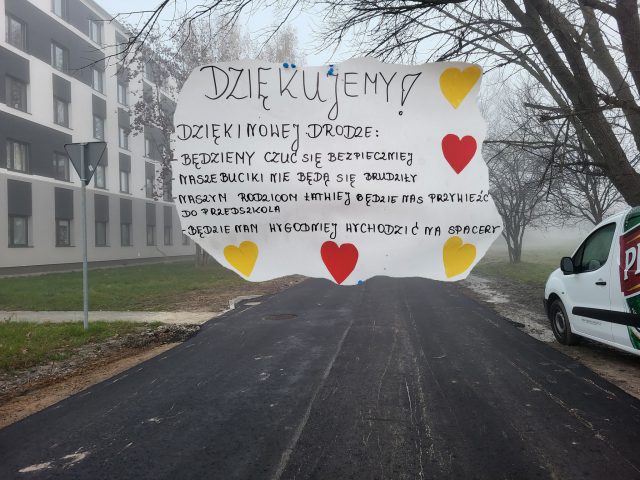 DZIĘKUJEMY!
DZIĘKI NOWEJ DRODZE:
- BĘDZIEMY CZUĆ SIĘ BEZPIECZNIEJ
- NASZE BUCIKI NIE BĘDĄ SIĘ BRUDZIŁY
- NASZYM RODZICOM ŁATWIEJ BĘDZIE NAS PRZYWIEŹĆ
DO PRZEDSZKOLA
- BĘDZIE NAM WYGODNIEJ WYCHODZIĆ NA SPACERY